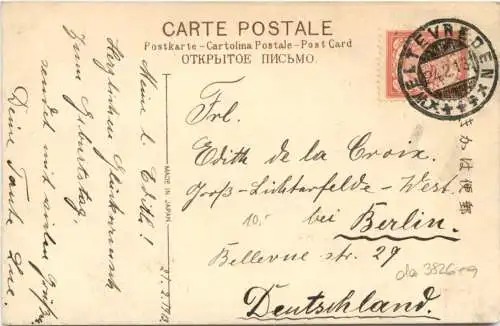 CARTE POSTALE
Postkarte - Cartolina Postale - Post Card
ОТКРЫТОЕ ПИСЬМО.
Meine l. Edith!
Herzlichen Glückwunsch
zum Geburtstag,
sendet mit vielen Grüßen
Deine Tante Lue.
27. 2. 1913
MADE IN JAPAN
WELTEVREDEN
Frl.
Edith de la Croix.
Groß-Lichterfelde-West.
10.- bei Berlin.
Bellevue str. 29
Deutschland.
da 3826+9
きかは便郵